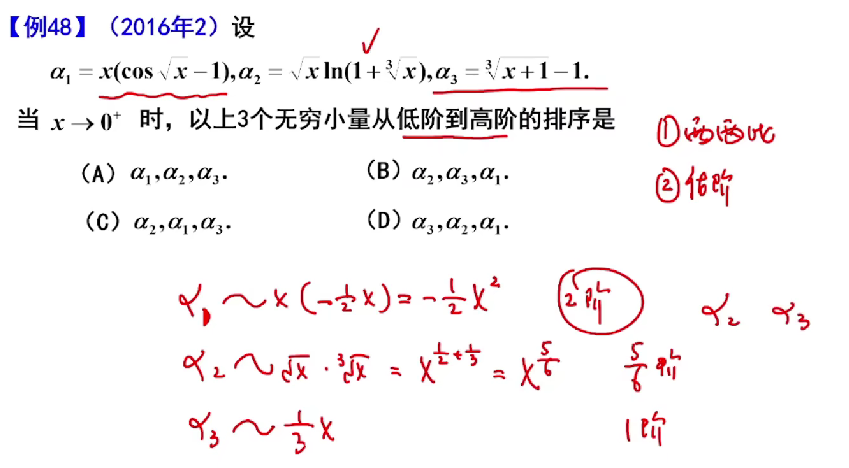 【例48】（2016年2）设
α₁ = x(cos √x − 1), α₂ = √x ln(1 + ∛x), α₃ = ∛(x+1) − 1.
当 x → 0⁺ 时，以上3个无穷小量从低阶到高阶的排序是
①两两比
②阶
（A）α₁, α₂, α₃.
（B）α₂, α₃, α₁.
（C）α₂, α₁, α₃.
（D）α₃, α₂, α₁.
α₁ ~ x(−½x) = −½x² 2阶
α₂ α₃
α₂ ~ √x · ∛x = x^(1/2 + 1/3) = x^(5/6) 5/6 阶
α₃ ~ ⅓x 1阶